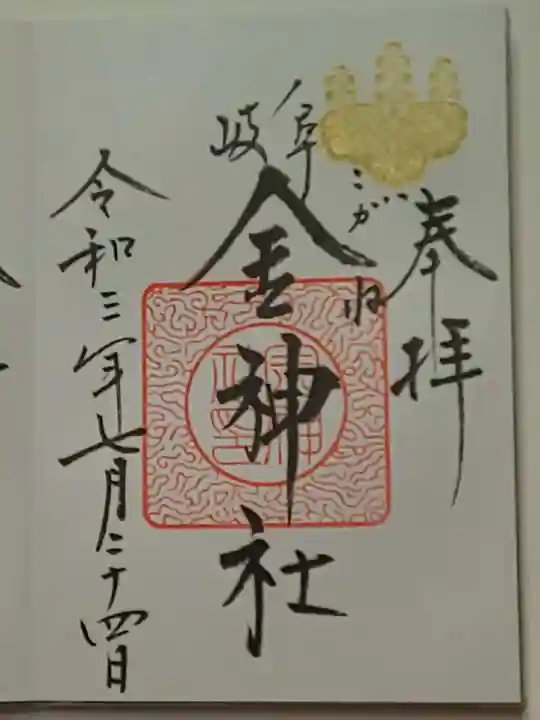 奉拝
岐阜
こがね
金神社
令和三年七月二十四日